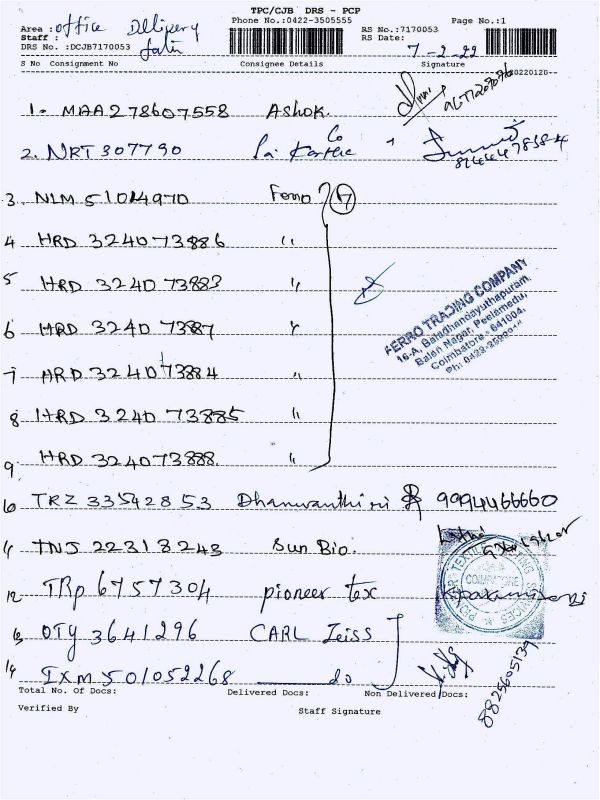 TPC/CJB DRS - PCP
Phone No.:0422-3505555 Page No.:1
Area : office Delivery
Staff :
RS No.:7170053
RS Date: 7-2-22
DRS No. :DCJB7170053
S No Consignment No Consignee Details Signature
20220120-
1. MAA278607558 Ashok.
2. NRT307790 Sai Karthic Co
3. NLM 51014970 Ferro 7
4 HRD 324073886 "
5 HRD 324073883 "
6 HRD 32407387 "
7 HRD 324073884 "
8 HRD 324073885 "
9. HRD 324073888. "
FERRO TRADING COMPANY
16-A, Baladhandayuthapuram,
Balan Nagar, Peelamedu,
Coimbatore - 641004.
10 TRZ 33542853 Dhanvanthiri 9994466660
11 TNJ 22318243 Sun Bio.
12 TRP 6757304 pioneer tex
COIMBATORE
13 OTY 3641296 CARL Zeiss
14 IXM 501052268 do
8825605139
Total No. Of Docs: Delivered Docs: Non Delivered Docs:
Verified By Staff Signature